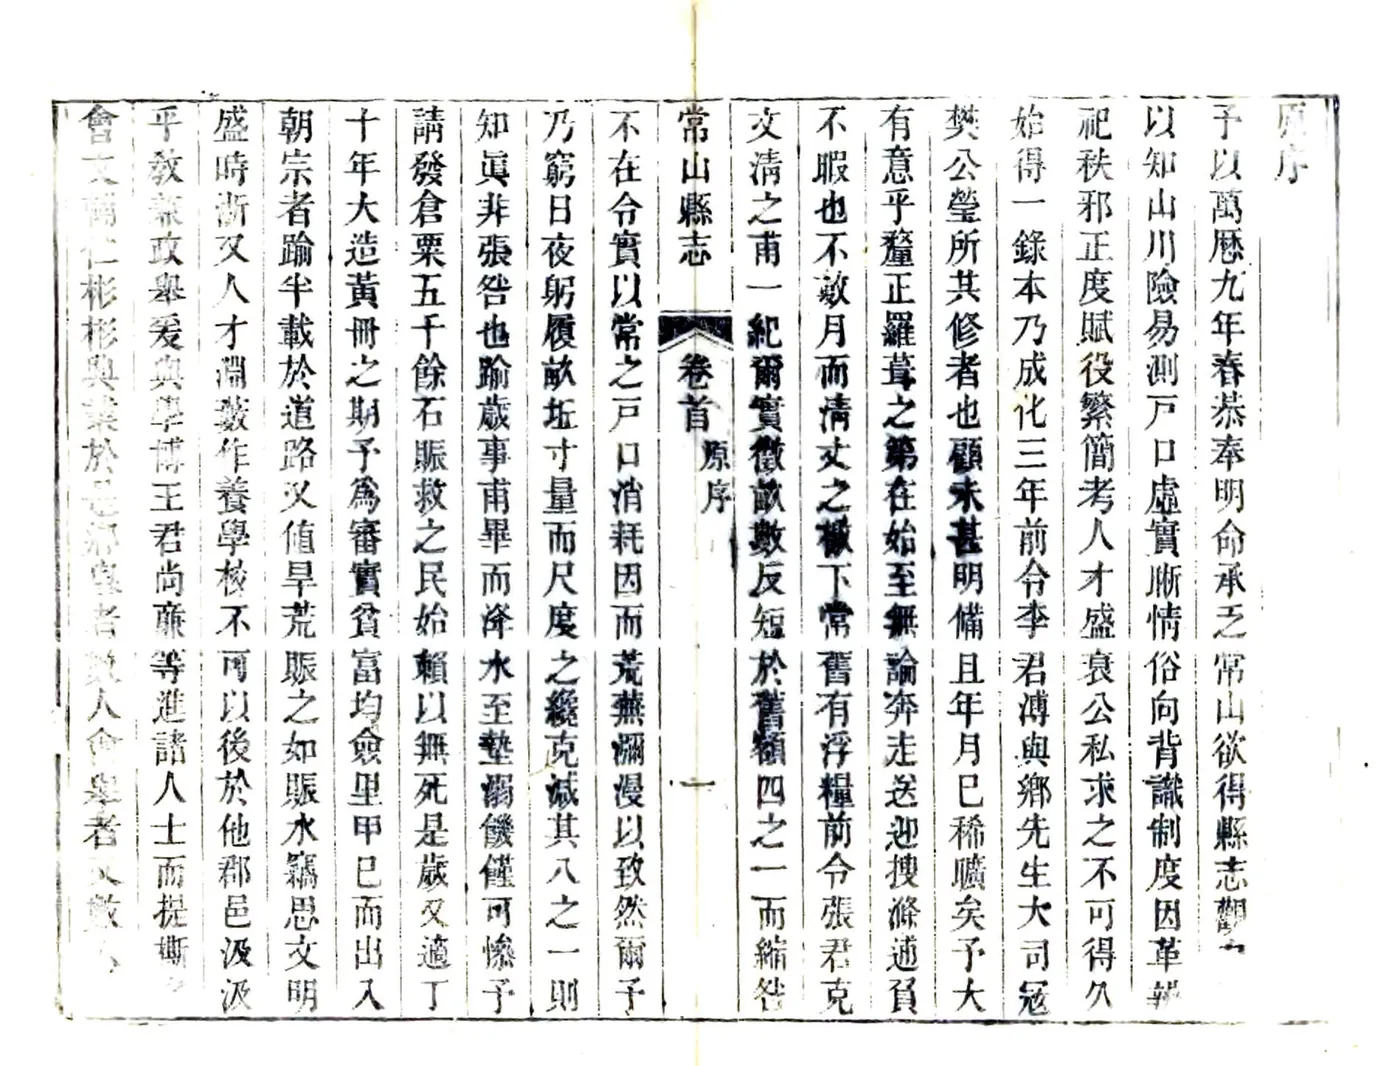 原序
予以萬曆九年春恭奉明命承乏常山欲得縣志觀
以知山川險易測戸口虛實晰情俗向背識制度因革
祀秩邪正度賦役繁簡考人才盛衰公私求之不可得久
始得一錄本乃成化三年前令李君溥與鄉先生大司冦
樊公瑩所其修者也顧未甚明備且年月巳稀曠矣予大
有意乎釐正羅葺之第在始至無論奔走送迎搜滌逋負
不暇也不敢月而清丈之檄下常舊有浮糧前令張君克
文清之甫一紀爾實徵畝數反短於舊額四之一而縮咎
常山縣志
卷首
原序
一
不在令實以常之戸口消耗因而荒蕪瀰漫以致然爾予
乃窮日夜躬履畝坵寸量而尺度之纔克減其八之一則
知眞非張咎也踰歲事甫畢而洚水至墊溺饑饉可慘予
請發倉粟五千餘石賑救之民始賴以無死是歲又適丁
十年大造黃冊之期予爲審實貧富均僉里甲巳而出入
朝宗者踰半載於道路又值旱荒賑之如賑水竊思文明
盛時浙又人才淵藪作養學校不可以後於他郡邑汲汲
乎敎兼政舉爰與學博王君尚廉等進諸人士而提撕
會文輔仁彬彬與業於是鄉者數人會舉者又數